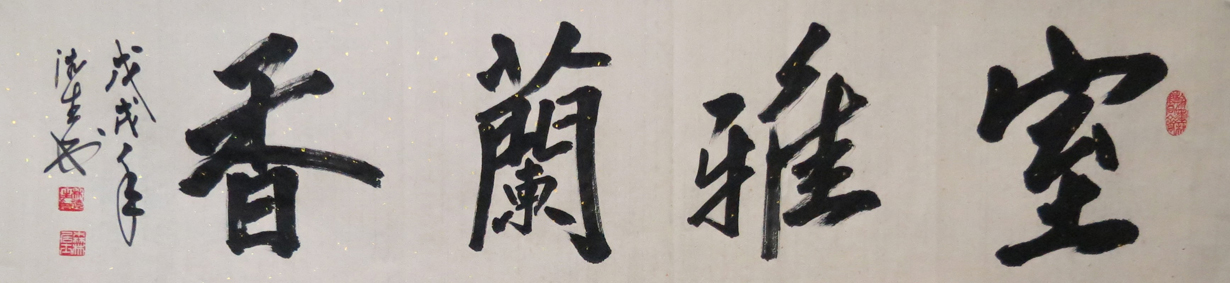 室雅蘭香
戊戌年